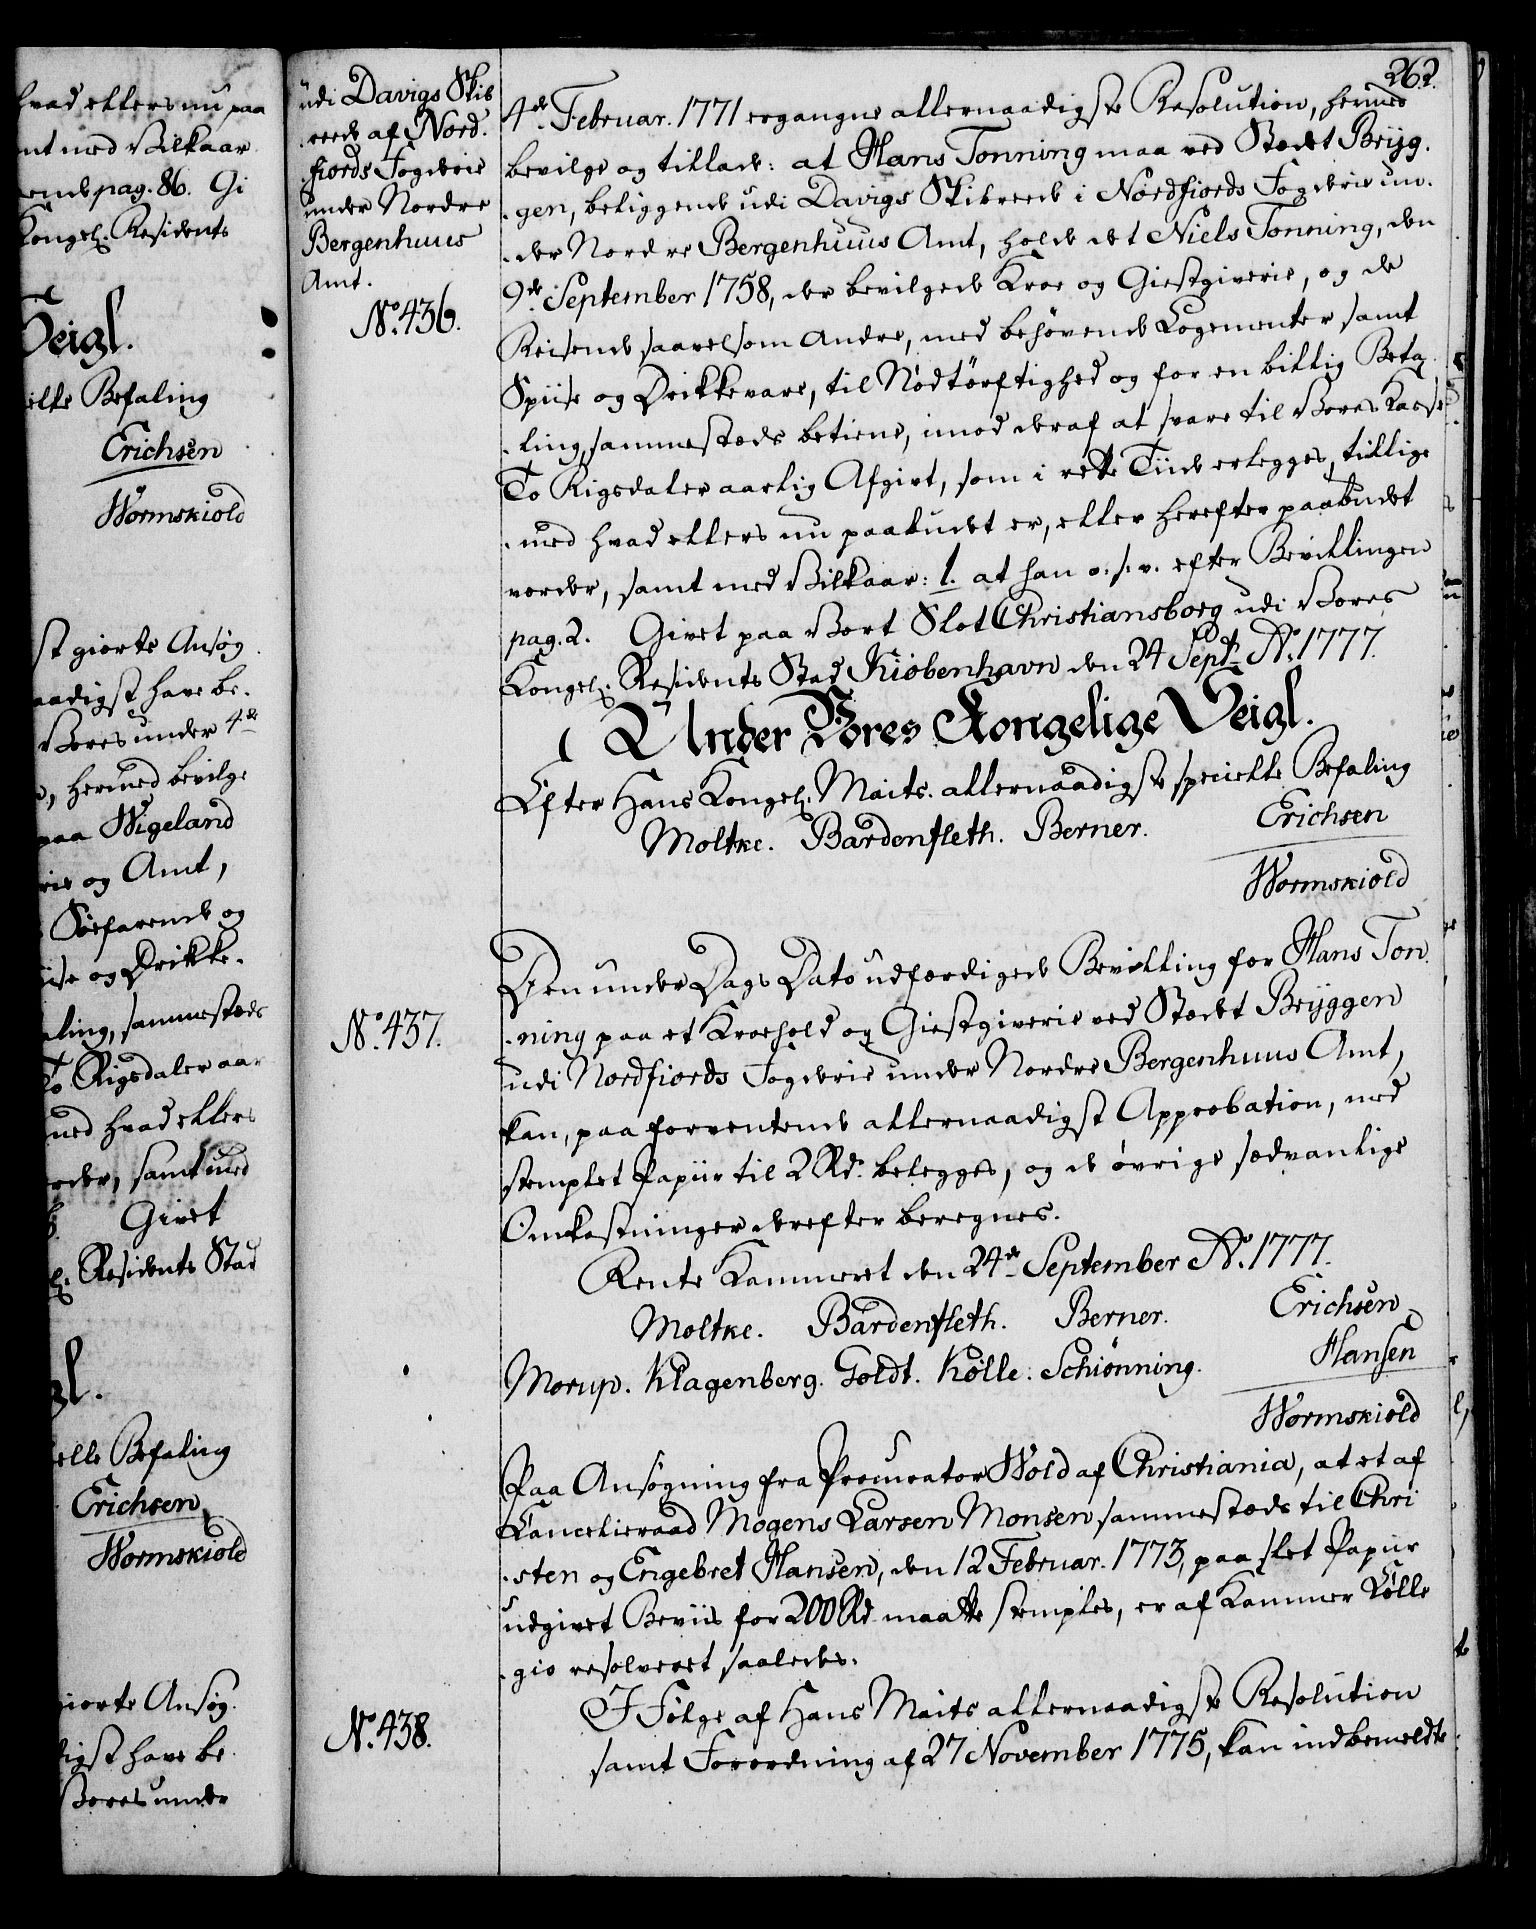 hvad ellers nu paa
nt med Vilkaar
ende pag. 86. Gi
Kongel. Residents
Seigl.
elle Befaling
Erichsen
Wormskiold
st giorte Ansøg
aadigst have be-
Vores under 4de
, hermed bevilge
paa Wigeland
rie og Amt,
Søefarende og
ise og Drikke-
aling, sammesteds
To Rigsdaler aar
med hvad ellers
order, samt med
Givet
l. Residents Stad
gl.
elle Befaling
Erichsen
Wormskiold
giorte Ansøg
digst have be
Vores under
262.
udi Davigs Skib
-reede af Nord-
fiords Fogderie
under Nordre
Bergenhuus
Amt.
No. 436.
4de Februar. 1771 ergangne allernaadigste Resolution, hermed
bevilge og tillade: at Hans Tonning maa ved Stedet Bryg-
-gen, beliggende udi Davigs Skibreede i Nordfiords Fogderie un-
-der Nordre Bergenhuus Amt, holde det Niels Tonning, den
9de September 1758, der bevilgede Kroe og Giestgiverie, og de
Reisende saavelsom andre, med behøvende Logementer samt
Spiise og Drikkevare, til Nødtørftighed og for en billig Beta-
-ling, sammesteds betiene, imod deraf at svare til Vores Kasse
To Rigsdaler aarlig Afgivt, som i rette Tiid erlegges, tillige
-med hvad ellers nu paabudet er, eller herefter paabudet
vorder, samt med Vilkaar: 1. at han o. s. v. efter Bevillingen
pag. 2. Givet paa Vort Slot Christiansborg udi Vores
Kongel. Residents Stad Kiøbenhavn den 24 Septr. Ao. 1777.
Under Vores Kongelige Seigl.
Efter Hans Kongel. Maits. allernaadigste specielle Befaling
Moltke. Bardenfleth. Berner. Erichsen
Wormskiold
No. 437.
Den under Dags Dato udfærdigede Bevilling for Hans Ton-
-ning paa et Kroehold og Giestgiverie ved Stedet Bryggen
udi Nordfiords Fogderie under Nordre Bergenhuus Amt,
kan, paa forventende allernaadigst Approbation, med
stemplet Papiir til 2 Rd. belegges, og de øvrige sædvanlige
Omkostninger derefter beregnes.
Rente Kammeret den 24de September Ao. 1777.
Moltke. Bardenfleth. Berner. Erichsen
Morup. Klagenberg. Goldt. Kølle. Schiønning. Hansen
Wormskiold
Paa Ansøgning fra Procurator Wold af Christiania, at et af
Cancelieraad Mogens Larsen Monsen sammesteds til Chri
-sten og Engebret Hansen, den 12 Februar. 1773, paa slet Papiir
udgivet Beviis for 200 Rd. maatte stemples, er af Kammer Colle
-gio resolveret saaledes:
No. 438.
I Følge af Hans Maits allernaadigste Resolution
samt Forordning af 27 November 1775, kan indbemeldte